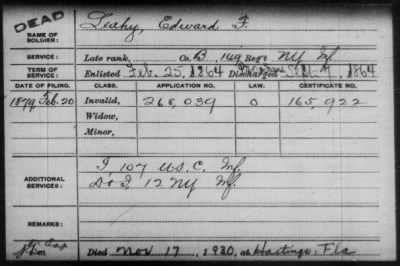 DEAD
NAME OF SOLDIER: Leahy, Edward F.
SERVICE: Late rank, Co. B, 149 Reg't NY Inf
TERM OF SERVICE: Enlisted Feb. 25, 1864 Discharged Sept. 7, 1864
DATE OF FILING. CLASS. APPLICATION NO. LAW. CERTIFICATE NO.
1879 Feb. 20 Invalid, 268,039 O 165,922
Widow,
Minor,
ADDITIONAL SERVICES: I, 107 U.S.C. Inf.
Do I, 12 NY Inf.
REMARKS:
Died Nov 17, 1920, at Hastings, Fla